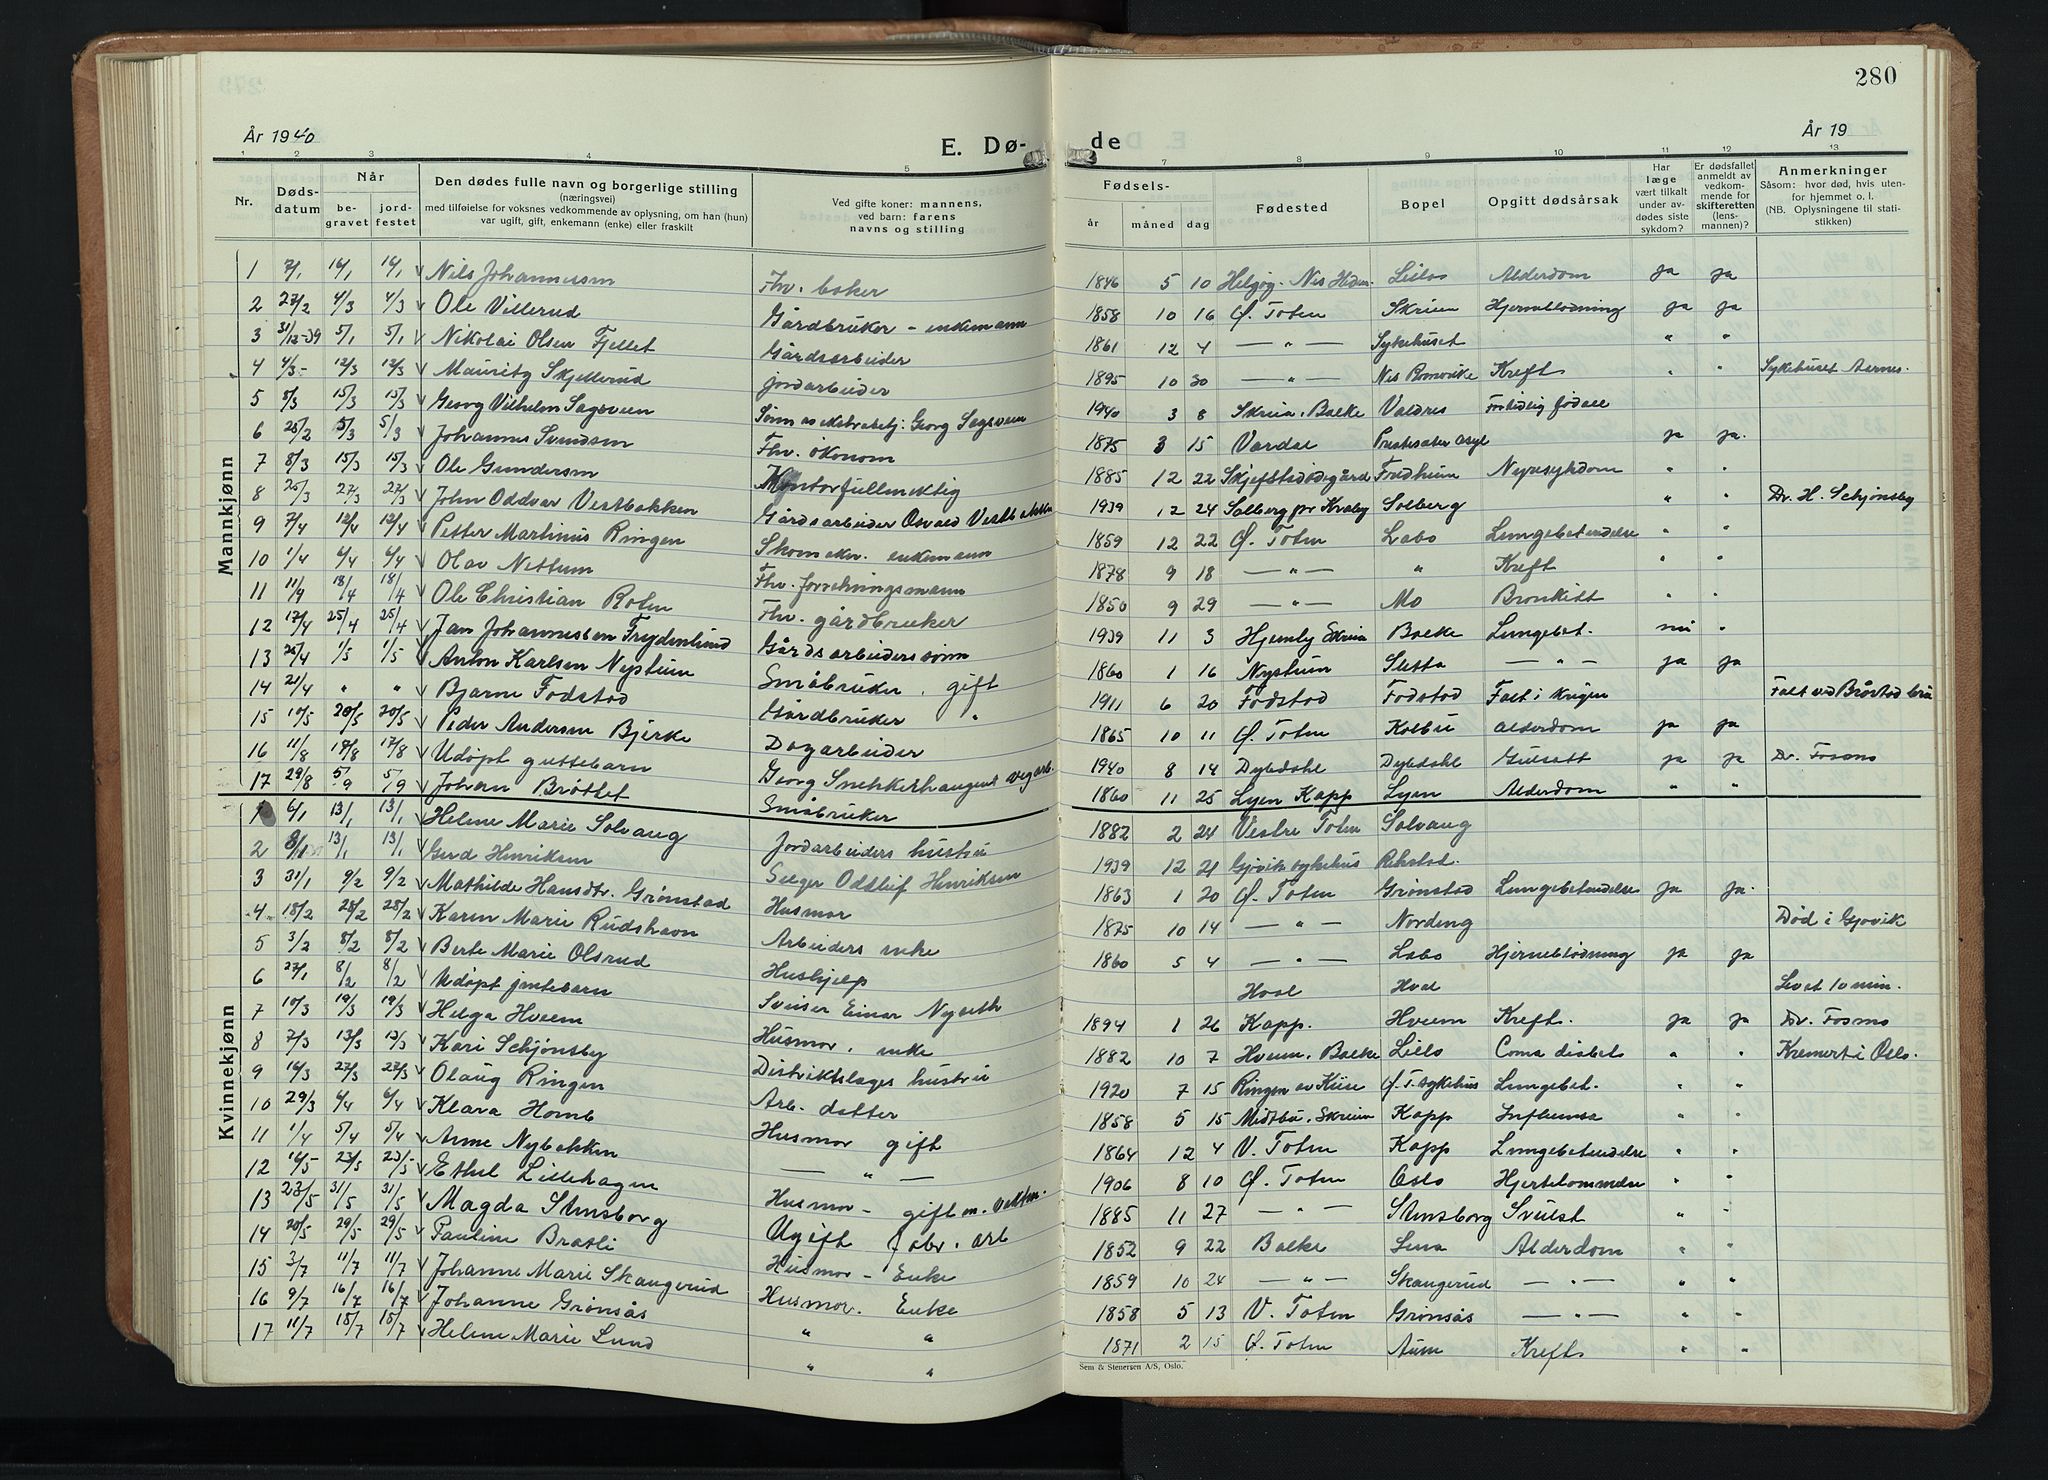 280
År 1940
E. Dø-
de
År 19
1 2 3 4 5 7 8 9 10 11 12 13
Nr.
Døds-
datum
Når
be-
gravet
jord-
festet
Den dødes fulle navn og borgerlige stilling
(næringsvei)
med tilføielse for voksnes vedkommende av oplysning, om han (hun)
var ugift, gift, enkemann (enke) eller fraskilt
Ved gifte koner: mannens,
ved barn: farens
navns og stilling
Fødsels-
år måned dag
Fødested
Bopel
Opgitt dødsårsak
Har
læge
vært tilkalt
under av-
dødes siste
sykdom?
Er dødsfallet
anmeldt av
vedkom-
mende for
skifteretten
(lens-
mannen)?
Anmerkninger
Såsom: hvor død, hvis uten-
for hjemmet o. l.
(NB. Oplysningene til stati-
stikken)
Mannkjønn
1 7/1 16/1 16/1 Nils Johannessen Fhv. baker 1846 5 10 Helgøy. Nes Hedm. Lillo Alderdom ja ja
2 27/2 4/3 4/3 Ole Villerud Gårdbruker - enkemann 1858 10 16 Ø. Toten Skreia Hjerneblødning ja ja
3 31/12-39 5/1 5/1 Nikolai Olsen Fjellet Gårdsarbeider 1861 12 4 — " — Sykehuset " "
4 4/3- 12/3 12/3 Mauritz Skjellerud jordarbeider 1895 10 30 — " — Nes Romerike Kreft " " Sykehuset Aernes.
5 8/3 15/3 15/3 Georg Vilhelm Sagsveen Georg Sagsveen 1940 3 8 Skreia, Balke Valdres For tidlig födsel
6 25/2 5/3 5/3 Johannes Svendsen Fhv. økonom 1875 3 15 Vardal Presteseter asyl ja ja.
7 8/3 15/3 15/3 Ole Gundersen Kontorfullmektig 1885 12 22 Skjefstadødegård Fredheim Nyresykdom " "
8 25/3 27/3 27/3 John Oddvar Vestbakken Gårdsarbeider Osvald Vestbakken 1939 12 24 Solberg pr Kraby Solberg " " Dr. H. Schjønsby
9 7/4 12/4 12/4 Petter Martinus Ringen Skomaker. enkemann 1859 12 22 Ø. Toten Labo Lungebetendelse " "
10 1/4 6/4 6/4 Olav Nettum Fhv. forretningsmann 1878 9 18 — " — " Kreft " "
11 11/4 18/4 18/4 Ole Christian Roten Fhv. gårdbruker 1850 9 29 — " — Mo Bronkitt " "
12 17/4 25/4 25/4 Jan Johannessen Frydenlund Gårdsarbeiders sønn 1939 11 3 Hjemly Skreia Balke Lungebet. nei "
13 25/4 1/5 1/5 Anton Karlsen Nystuen Småbruker, gift 1860 1 16 Nystuen Sletta — " — ja ja
14 21/4 " " Bjarne Fodstad Gårdbruker " 1911 6 20 Fodstad Fodstad Falt i krigen Falt ved Bråstad bru
15 10/5 20/5 20/5 Peder Andersen Bjerke Dagarbeider 1865 10 11 Ø. Toten Kolbu Alderdom ja ja
16 11/8 17/8 17/8 Udøpt guttebarn Georg Snekkerhaugen vegarb. 1940 8 14 Dybdahl Dybdahl Gulsott ja ja Dr. Fosmo
17 29/8 5/9 5/9 Johan Bråttet Småbruker 1860 11 25 Lyen Kapp Lyen Alderdom " "
Kvinnekjønn
1 6/1 13/1 13/1 Helene Marie Solvang Jordarbeiders hustru 1882 2 24 Vestre Toten Solvang
2 8/1 13/1 13/1 Gerd Henriksen Selger Oddleif Henriksen 1939 12 21 Gjøvik sykehus Rekstad.
3 31/1 9/2 9/2 Mathilde Hansdtr. Grønstad Husmor 1863 1 20 Ø. Toten Grønstad Lungebetendelse ja ja.
4. 18/2 28/2 28/2 Karen Marie Rudshavn Arbeiders enke 1875 10 14 — " — Nordeng Død i Gjøvik
5 3/2 8/2 8/2 Berte Marie Olsrud Hushjelp 1860 5 4 — " — Labo Hjerneblødning ja ja
6 27/1 8/2 8/2 Udøpt jentebarn Sveiser Einar Nyseth Hval Hval Levet 10 min.
7 10/3 19/3 19/3 Helga Hveem Husmor, enke 1894 1 26 Kapp. Hveem Kreft. ja ja Dr. Fosmo
8 7/3 13/3 13/3 Kari Schjønsby Distriktslæges hustru 1882 10 7 Hveem, Balke Lillo Coma diabet " " Kremert i Oslo.
9 16/3 27/3 27/3 Olaug Ringen Arb. datter 1920 7 15 Ringen av Kise Ø. T. sykehus Lungebet. " "
10 29/3 6/4 6/4 Klara Homb Husmor gift 1858 5 15 Midtbu, Skreia Kapp Influensa " "
11 1/4 5/4 5/4 Anne Nybakken — " — 1864 12 4 V. Toten Kapp Lungebetendelse " "
12 16/5 23/5 23/5 Ethel Lillehagen Husmor - gift m. 1906 8 10 Ø. Toten Oslo Hjertelammelse " "
13 23/5 31/5 31/5 Magda Stensborg Ugift fabr. arb 1885 11 27 — " — Stensborg Svulst " "
14 20/5 29/5 29/5 Pauline Bratli Husmor - Enke 1852 9 22 Balke Lena Alderdom " "
15 3/7 11/7 11/7 Johanne Marie Skangerud Husmor. Enke 1859 10 24 — " — Skangerud — " — " "
16 9/7 16/7 16/7 Johanne Grønsås " " 1858 5 13 V. Toten Grønsås — " — " "
17 11/7 18/7 18/7 Helene Marie Lund " " 1871 2 15 Ø. Toten Kreft " "
Sem & Stenersen A/S, Oslo.